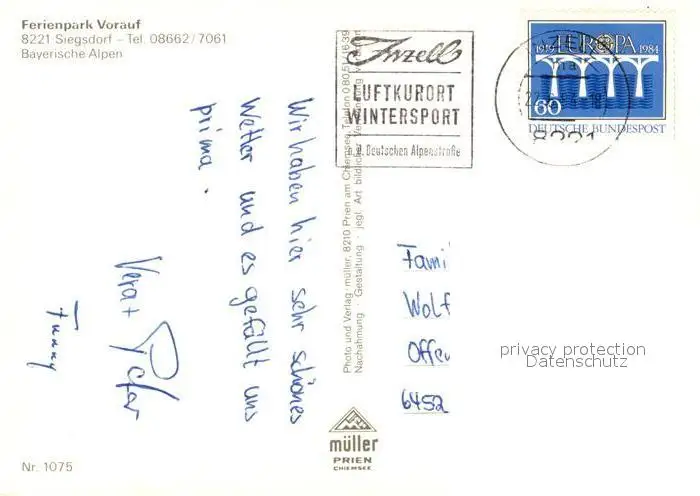 Ferienpark Vorauf
8221 Siegsdorf – Tel. 08662/7061
Bayerische Alpen
Wir haben hier sehr schönes
Wetter und es gefällt uns
prima.
Vera + Peter
Funny
Nr. 1075
Photo und Verlag: müller, 8210 Prien am Chiemsee, Telefon 080 51/16 39
Nachahmung · Gestaltung · jegl. Art bildlicher Verwendung
müller
PRIEN
CHIEMSEE
Inzell
LUFTKURORT
WINTERSPORT
a. d. Deutschen Alpenstraße
1959 EUROPA 1984
60
DEUTSCHE BUNDESPOST
8221
Fami
Wolf
Offe
6452
privacy protection
Datenschutz